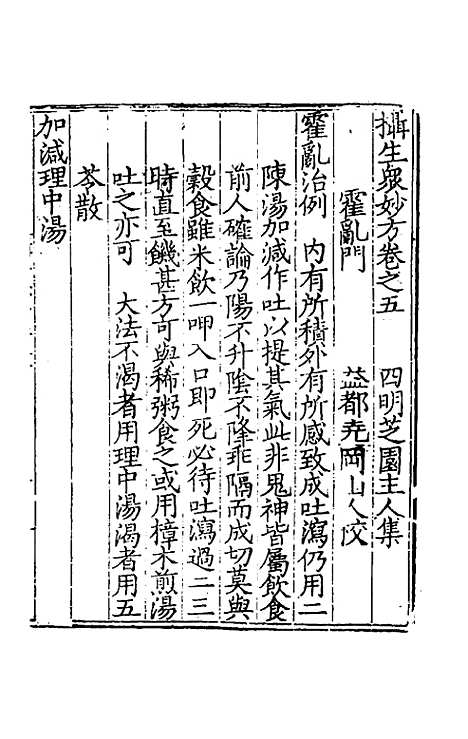 攝生衆妙方卷之五　四明芝園主人集
霍亂門　益都堯岡山人校
霍亂治例　內有所積外有所感致成吐瀉仍用二
陳湯加減作吐以提其氣此非鬼神皆屬飲食
前人確論乃陽不升陰不降乖隔而成切莫與
穀食雖米飲一呷入口即死必待吐瀉過二三
時直至饑甚方可與稀粥食之或用樟木煎湯
吐之亦可　大法不渴者用理中湯渴者用五
苓散
加減理中湯